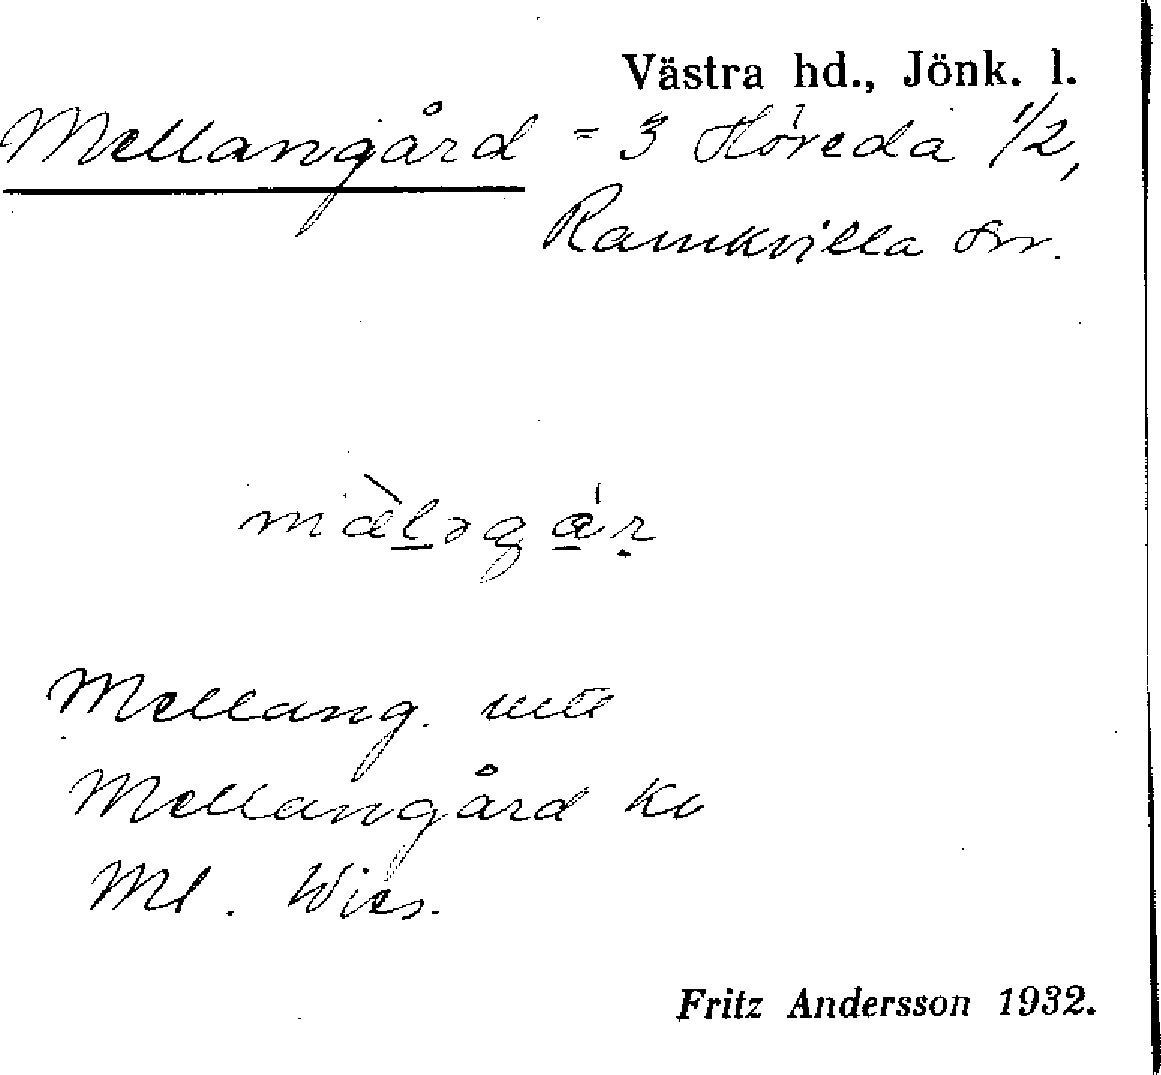 Västra hd., Jönk. l.
Mellangård = 3 Höreda 1/2,
Ramkvilla sn.
mæ̀ləgá̱ṛ
Mellang.
Mellangård
Ml. Wies.
Fritz Andersson 1932.